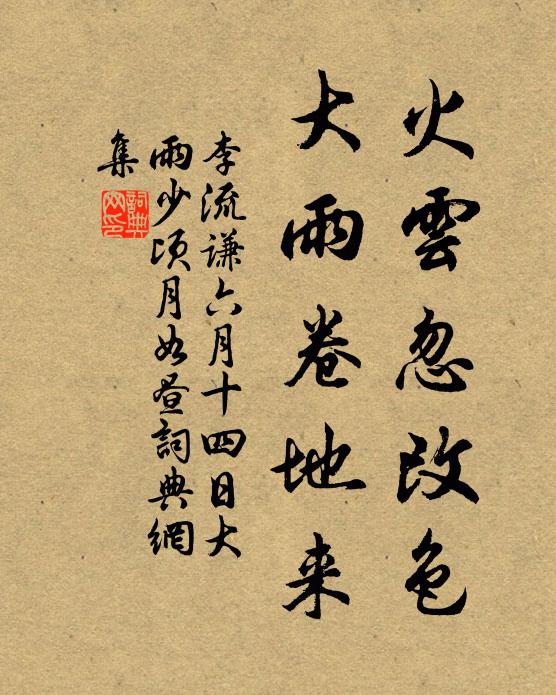 火雲忽改色
大雨卷地来
李流謙六月十四日大
雨少頃月如昼詞典網
集
詞典
网印